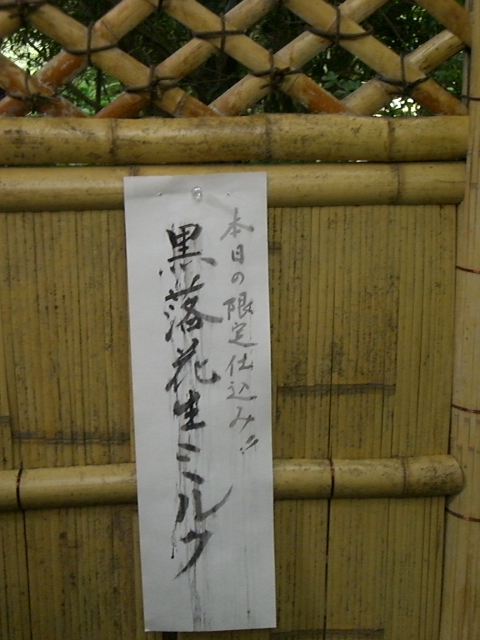 本日の限定仕込み〃
黒落花生ミルク